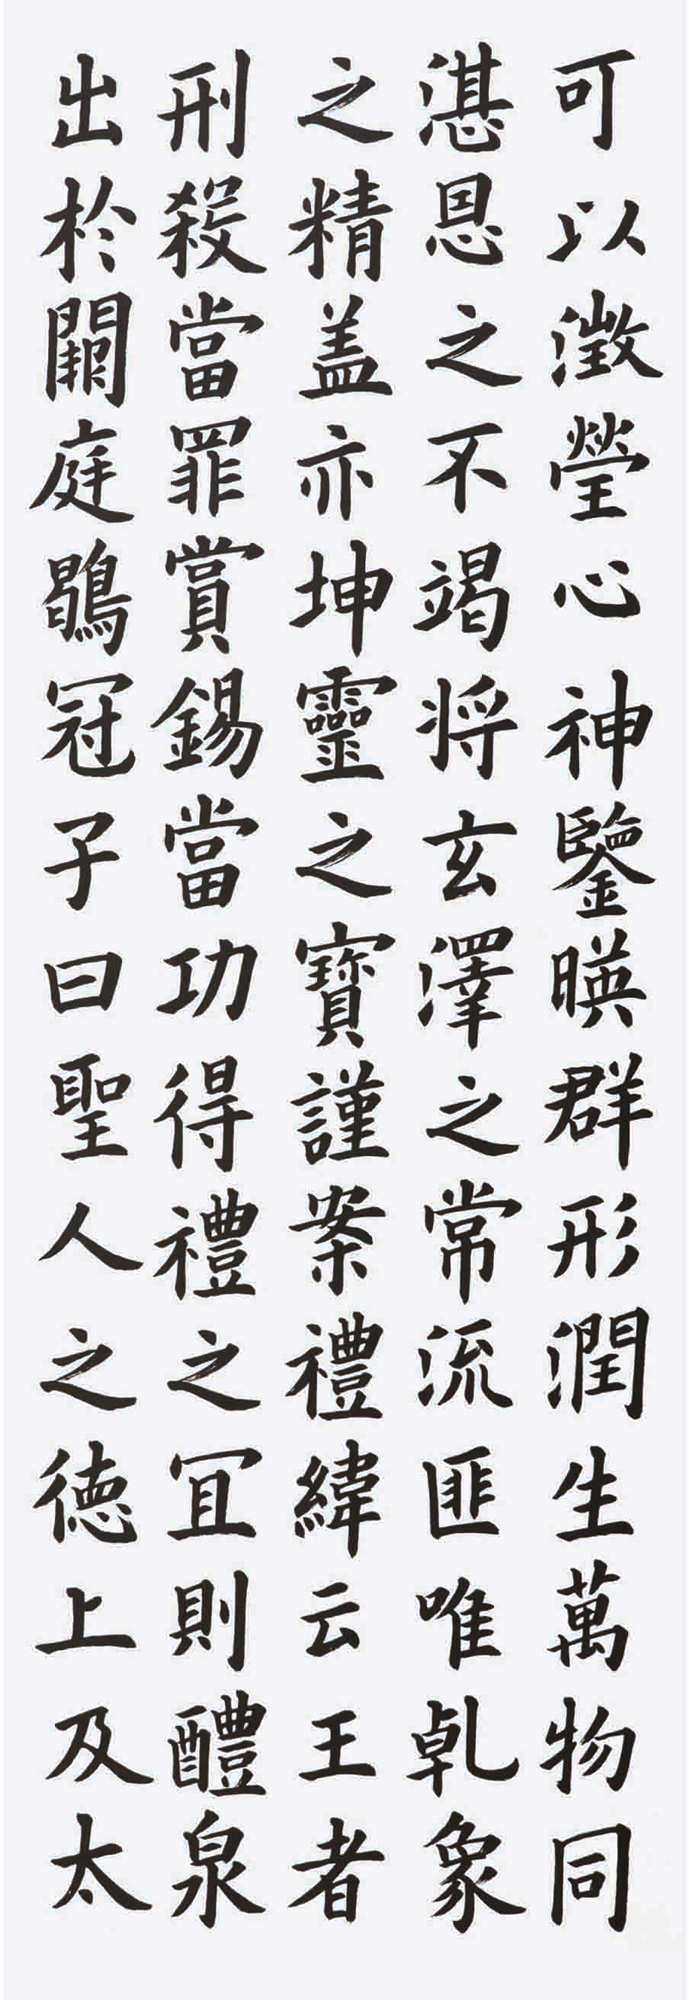 可以澂瑩心神鑒暎群形潤生萬物同
湛恩之不竭将玄澤之常流匪唯乹象
之精盖亦坤靈之寶謹案禮緯云王者
刑殺當罪賞錫當功得禮之冝則醴泉
出於闕庭鶡冠子曰聖人之徳上及太